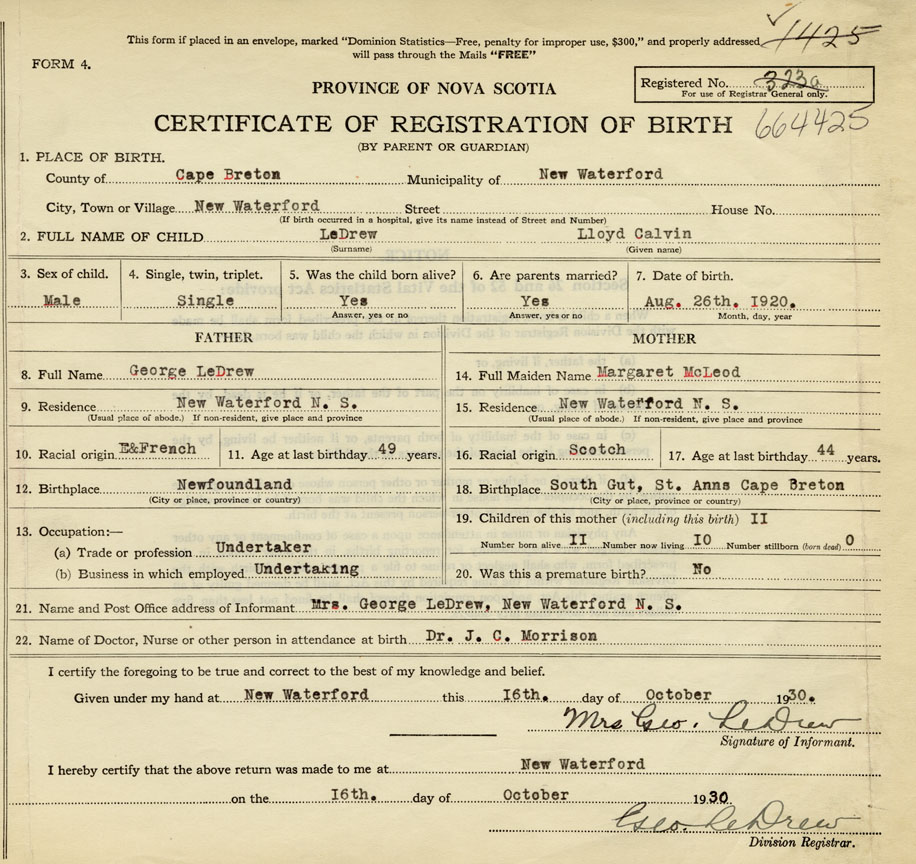 1425
This form if placed in an envelope, marked "Dominion Statistics—Free, penalty for improper use, $300," and properly addressed
will pass through the Mails "FREE"
FORM 4.
Registered No.
For use of Registrar General only.
PROVINCE OF NOVA SCOTIA
CERTIFICATE OF REGISTRATION OF BIRTH
664425
(BY PARENT OR GUARDIAN)
1. PLACE OF BIRTH.
County of Cape Breton Municipality of New Waterford
City, Town or Village New Waterford Street House No.
(If birth occurred in a hospital, give its name instead of Street and Number)
2. FULL NAME OF CHILD LeDrew Lloyd Calvin
(Surname) (Given name)
3. Sex of child. 4. Single, twin, triplet. 5. Was the child born alive? 6. Are parents married? 7. Date of birth.
Male Single Yes Yes Aug. 26th. I920.
Answer, yes or no Answer, yes or no Month, day, year
FATHER MOTHER
8. Full Name George LeDrew 14. Full Maiden Name Margaret McLeod
9. Residence New Waterford N. S. 15. Residence New Waterford N. S.
(Usual place of abode.) If non-resident, give place and province (Usual place of abode.) If non-resident, give place and province
10. Racial origin E&French 11. Age at last birthday 49 years. 16. Racial origin Scotch 17. Age at last birthday 44 years.
12. Birthplace Newfoundland 18. Birthplace South Gut, St. Anns Cape Breton
(City or place, province or country) (City or place, province or country)
13. Occupation:— 19. Children of this mother (including this birth) II
(a) Trade or profession Undertaker Number born alive II Number now living I0 Number stillborn (born dead) 0
(b) Business in which employed Undertaking 20. Was this a premature birth? No
21. Name and Post Office address of Informant Mrs. George LeDrew, New Waterford N. S.
22. Name of Doctor, Nurse or other person in attendance at birth Dr. J. C. Morrison
I certify the foregoing to be true and correct to the best of my knowledge and belief.
Given under my hand at New Waterford this I6th. day of October 1930.
Mrs Geo. LeDrew
Signature of Informant.
I hereby certify that the above return was made to me at New Waterford
on the I6th. day of October 1930
Geo. LeDrew
Division Registrar.